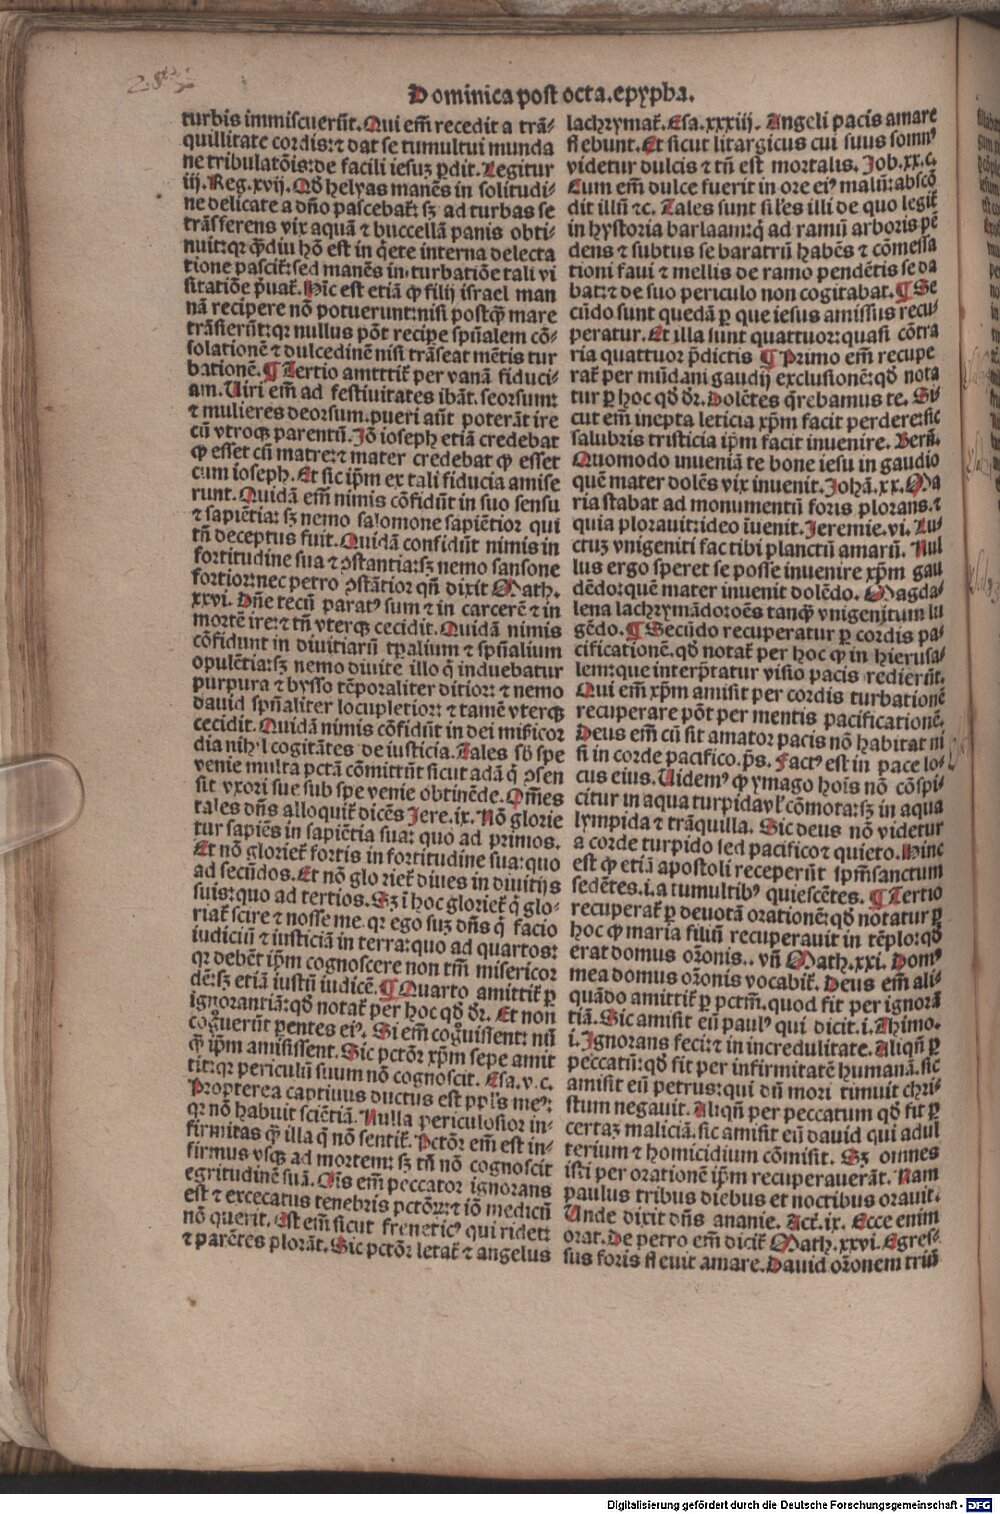 Dominica post octa. epypha.
turbis immiscuerūt. Qui em̄ recedit a trā-
quillitate cordis: ⁊ dat se tumultui munda
ne tribulatōis: de facili iesuꝫ ꝑdit. Legitur
iij. Reg. xvij. Qd̄ helyas manēs in solitudi-
ne delicate a dn̄o pascebat᷑: sꝫ ad turbas se
trāsferens vix aquā ⁊ buccellā panis obti-
nuit: qꝛ qͣ̄diu hō est in qͥete interna delecta
tione pascit᷑: sed manēs in turbatiōe tali vi
sitatiōe pͥuat᷑. Hīc est etiā ꝙ filij israel man
nā recipere nō potuerunt: nisi postqͣ̄ mare
trāsierūt: qꝛ nullus pōt recipe spūalem cō-
solationē ⁊ dulcedinē nisi trāseat mētis tur
bationē. ¶ Tertio amtttit᷑ per vanā fiduci-
am. Uiri em̄ ad festiuitates ibāt. seorsum:
⁊ mulieres deorsum. pueri aūt poterāt ire
cū vtroqꝫ parentū. Jō ioseph etiā credebat
ꝙ esset cū matre: ⁊ mater credebat ꝙ esset
cum ioseph. Et sic ip̄m ex tali fiducia amise
runt. Quidā em̄ nimis cōfidūt in suo sensu
⁊ sapiētia: sꝫ nemo salomone sapiētior qui
tn̄ deceptus fuit. Quidā confidūt nimis in
fortitudine sua ⁊ ꝯstantia: sꝫ nemo sansone
fortior: nec petro ꝯstātior qn̄ dixit Math.
xxvi. Dn̄e tecū paratꝰ sum ⁊ in carcerē ⁊ in
mortē ire: ⁊ tn̄ vterqꝫ cecidit. Quidā nimis
cōfidunt in diuitiarū tp̄alium ⁊ spūalium
opulētia: sꝫ nemo diuite illo qͥ induebatur
purpura ⁊ bysso tēporaliter ditior: ⁊ nemo
dauid spūaliter locupletior: ⁊ tamē vterqꝫ
cecidit. Quidā nimis cōfidūt in dei mis̄icor
dia nihꝰl cogitātes de iusticia. Tales sb̄ spe
venie multa pctā cōmittūt sicut adā qͥ ꝯsen
sit vxori sue sub spe venie obtinēde. Om̄es
tales dn̄s alloquit᷑ dicēs Jere. ix. Nō glorie
tur sapiēs in sapiētia sua: quo ad primos.
Et nō gloriet᷑ fortis in fortitudine sua: quo
ad secūdos. Et nō glo riet᷑ diues in diuitijs
suis: quo ad tertios. Sꝫ ī hoc gloriet᷑ qͥ glo-
riat᷑ scire ⁊ nosse me. qꝛ ego suꝫ dn̄s qͥ facio
iudiciū ⁊ iusticiā in terra: quo ad quartos:
qꝛ debēt ip̄m cognoscere non tm̄ misericor
dē: sꝫ etiā iustū iudicē. ¶ Quarto amittit᷑ ꝑ
ignorantiā: qd̄ notat᷑ per hoc qd̄ dr̄. Et non
cogͦuerūt ꝑentes eiꝰ. Si em̄ cogͦuissent: nū
qͣ̄ ip̄m amisissent. Sic pctōr xp̄m sepe amit
tit: qꝛ periculū suum nō cognoscit. Esa. v. c.
Propterea captiuus ductus est ppl̄s meꝰ:
qꝛ nō habuit sciētiā. Nulla periculosior in-
firmitas qͣ̄ illa qͣ nō sentit᷑. Pctōr em̄ est in-
firmus vsqꝫ ad mortem: sꝫ tn̄ nō cognoscit
egritudinē suā. Oīs em̄ peccator ignorans
est ⁊ excecatus tenebris pctōꝝ: ⁊ iō medicū
nō querit. Est em̄ sicut freneticꝰ qui ridet:
⁊ parētes plorāt. Sic pctōr letat᷑ ⁊ angelus
lachrymat᷑. Esa. xxxiij. Angeli pacis amare
flebunt. Et sicut litargicus cui suus somnꝰ
videtur dulcis ⁊ tn̄ est mortalis. Job. xx. c.
Cum em̄ dulce fuerit in ore eiꝰ malū: abscō
dit illū ⁊c. Tales sunt sil̄es illi de quo legit᷑
in hystoria barlaam: qͥ ad ramū arboris pē
dens ⁊ subtus se baratrū habēs ⁊ cōmessa
tioni faui ⁊ mellis de ramo pendētis se da
bat: ⁊ de suo periculo non cogitabat. ¶ Se
cūdo sunt quedā ꝑ que iesus amissus recu-
peratur. Et illa sunt quattuor: quasi cōtra
ria quattuor p̄dictis ¶ Primo em̄ recupe
rat᷑ per mūdani gaudij exclusionē: qd̄ nota
tur ꝑ hoc qd̄ dr̄. Dolētes qͥrebamus te. Si-
cut em̄ inepta leticia xp̄m facit perdere: sic
salubris tristicia ip̄m facit inuenire. Bern̄.
Quomodo inueniā te bone iesu in gaudio
quē mater dolēs vix inuenit. Johā. xx. Ma
ria stabat ad monumentū foris plorans. ⁊
quia plorauit: ideo īuenit. Jeremie. vi. Lu-
ctuꝫ vnigeniti fac tibi planctū amarū. Nul
lus ergo speret se posse inuenire xp̄m gau
dēdo: quē mater inuenit dolēdo. Magda-
lena lachrymādo: oēs tanqͣ̄ vnigenitum lu
gēdo. ¶ Secūdo recuperatur ꝑ cordis pa-
cificationē. qd̄ notat᷑ per hoc ꝙ in hierusa-
lem: que interp̄tatur visio pacis redierūt.
Qui em̄ xp̄m amisit per cordis turbationē
recuperare pōt per mentis pacificationē.
Deus em̄ cū sit amator pacis nō habitat ni
si in corde pacifico. p̄s. Factꝰ est in pace lo-
cus eius. Uidemꝰ ꝙ ymago hoīs nō cōspi-
citur in aqua turpida vl̓ cōmota: sꝫ in aqua
lympida ⁊ trāquilla. Sic deus nō videtur
a corde turpido sed pacifico ⁊ quieto. Hinc
est ꝙ etiā apostoli receperūt spm̄sanctum
sedētes. i. a tumultibꝰ quiescētes. ¶ Tertio
recuperat᷑ ꝑ deuotā orationē: qd̄ notatur ꝑ
hoc ꝙ maria filiū recuperauit in tēplo: qd̄
erat domus or̄onis.. vn̄ Math. xxi. Domꝰ
mea domus or̄onis vocabit᷑. Deus em̄ ali-
quādo amittit᷑ ꝑ pctm̄. quod fit per ignorā
tiā. Sic amisit eū paulꝰ qui dicit. i. Thimo.
i. Ignorans feci: ⁊ in incredulitate. Aliqn̄ ꝑ
peccatū: qd̄ fit per infirmitatē humanā. sic
amisit eū petrus: qui dū mori timuit chri-
stum negauit. Aliqn̄ per peccatum qd̄ fit ꝑ
certaꝫ maliciā. sic amisit eū dauid qui adul
terium ⁊ homicidium cōmisit. Sꝫ omnes
isti per orationē ip̄m recuperauerāt. Nam
paulus tribus diebus et noctibus orauit.
Unde dixit dn̄s ananie. Act᷑. ix. Ecce enim
orat. De petro em̄ dicit᷑ Math. xxvi. Egres-
sus foris fleuit amare. Dauid or̄onem triū
Digitalisierung gefördert durch die Deutsche Forschungsgemeinschaft - DFG